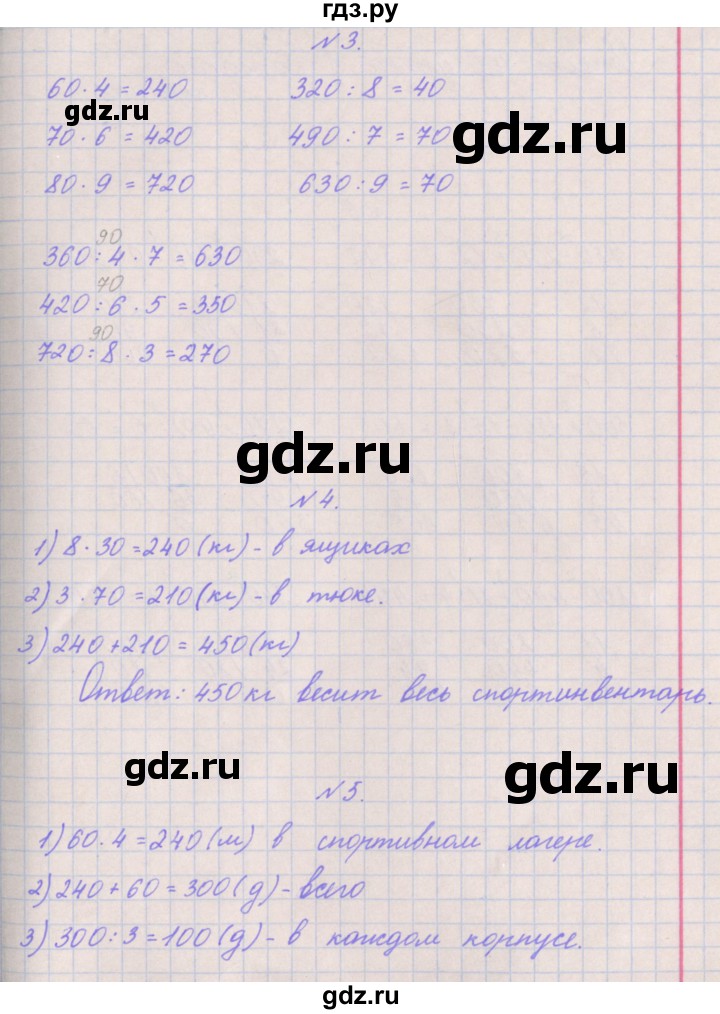 гдз.ру
№3.
60·4 = 240 320 : 8 = 40
gdz.ru
70·6 = 420 490 : 7 = 70
gdz.ru
80·9 = 720 630 : 9 = 70
90
360 : 4 · 7 = 630
70
420 : 6 · 5 = 350
90
720 : 8 · 3 = 270
gdz.ru
№4.
1) 8·30=240 (кг) - в ящиках
2) 3·70=210 (кг) - в тюке.
3) 240+210 = 450 (кг)
Ответ: 450 кг весит весь спортинвентарь.
gdz.ru
gdz.ru
№5.
1) 60·4=240 (м) в спортивном лагере.
2) 240+60=300 (д) - всего
3) 300:3=100 (д) - в каждом корпусе.
gdz.ru